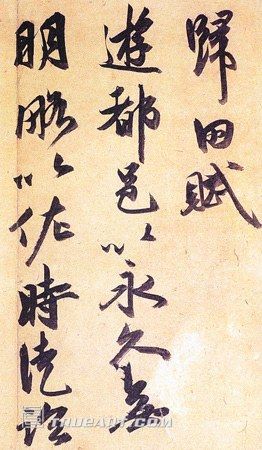 歸田賦
遊都邑以永久無
明略以佐時徒臨
TRUEART.COM